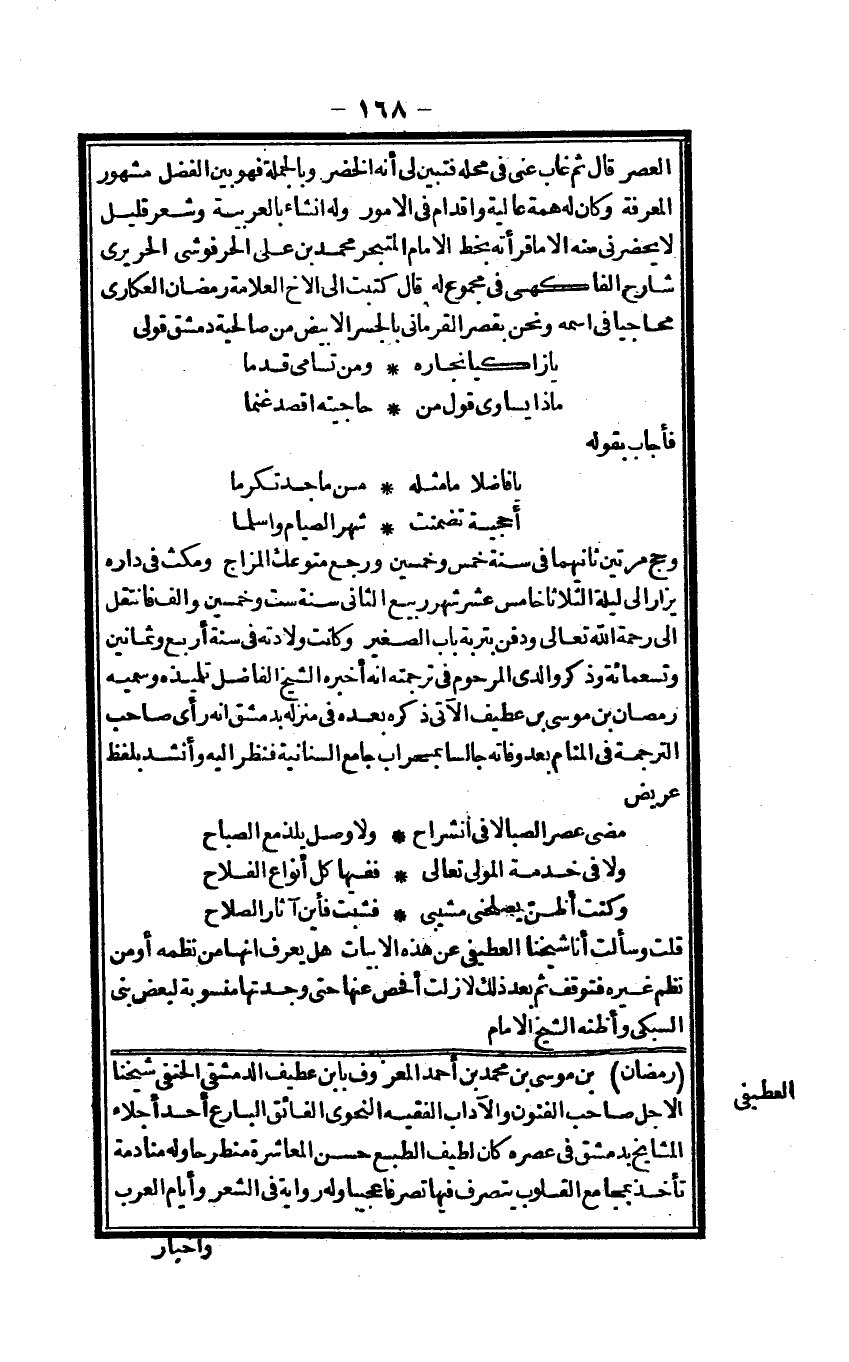 - ١٦٨ -
العصر قال ثم غاب عنى فى محله فتبين لى أنه الخضر وبالجملة فهو بين الفضل مشهور
المعرفة وكان له همة عالية واقدام فى الامور وله انشاء بالعربية وشعر قليل
لا يحضرنى منه الا ما قرأته بخط الامام المتبحر محمد بن على الحرفوشى الحريرى
شارح الفاكهى فى مجموع له قال كتبت الى الاخ العلامة رمضان العكارى
محاجيا فى اسمه ونحن بقصر القرمانى بالجسر الابيض من صالحية دمشق قولى
يا زاكيا نجاره * ومن تسامى قدما
ماذا يساوى قول من * حاجيته اقصد غنما
فأجاب بقوله
يا فاضلا ما مثله * من ماجد تكرما
أحجية تضمنت * شهر الصيام واسلما
وحج مرتين ثانيهما فى سنة خمس وخمسين ورجع متوعك المزاج ومكث فى داره
يزار الى ليلة الثلاثا خامس عشر شهر ربيع الثانى سنة ست وخمسين والف فانتقل
الى رحمة الله تعالى ودفن بتربة باب الصغير وكانت ولادته فى سنة أربع وثمانين
وتسعمائة وذكر والدى المرحوم فى ترجمته انه أخبره الشيخ الفاضل تلميذه وسميه
رمضان بن موسى بن عطيف الآتى ذكره بعده فى منزله بدمشق انه رأى صاحب
الترجمة فى المنام بعد وفاته جالسا بمحراب جامع السنانية فنظر اليه وأنشد بلفظ
عريض
مضى عصر الصبا لا فى انشراح * ولا وصل يلذ مع الصباح
ولا فى خدمة المولى تعالى * ففيها كل أنواع الفلاح
وكنت أظن يصلحنى مشيبى * فشبت فأين آثار الصلاح
قلت وسألت أنا شيخنا العطيفى عن هذه الابيات هل يعرف انها من نظمه أو من
نظم غيره فتوقف ثم بعد ذلك لا زلت أفحص عنها حتى وجدتها منسوبة لبعض بنى
السبكى وأظنه الشيخ الامام
العطيفى
(رمضان) بن موسى بن محمد بن أحمد المعروف بابن عطيف الدمشقى الحنفى شيخنا
الاجل صاحب الفنون والآداب الفقيه النحوى الفائق البارع أحد أجلاء
المشايخ بدمشق فى عصره كان لطيف الطبع حسن المعاشرة منطرحا وله منادمة
تأخذ بمجامع القلوب يتصرف فيها تصرفا عجيبا وله رواية فى الشعر وأيام العرب
واخبار